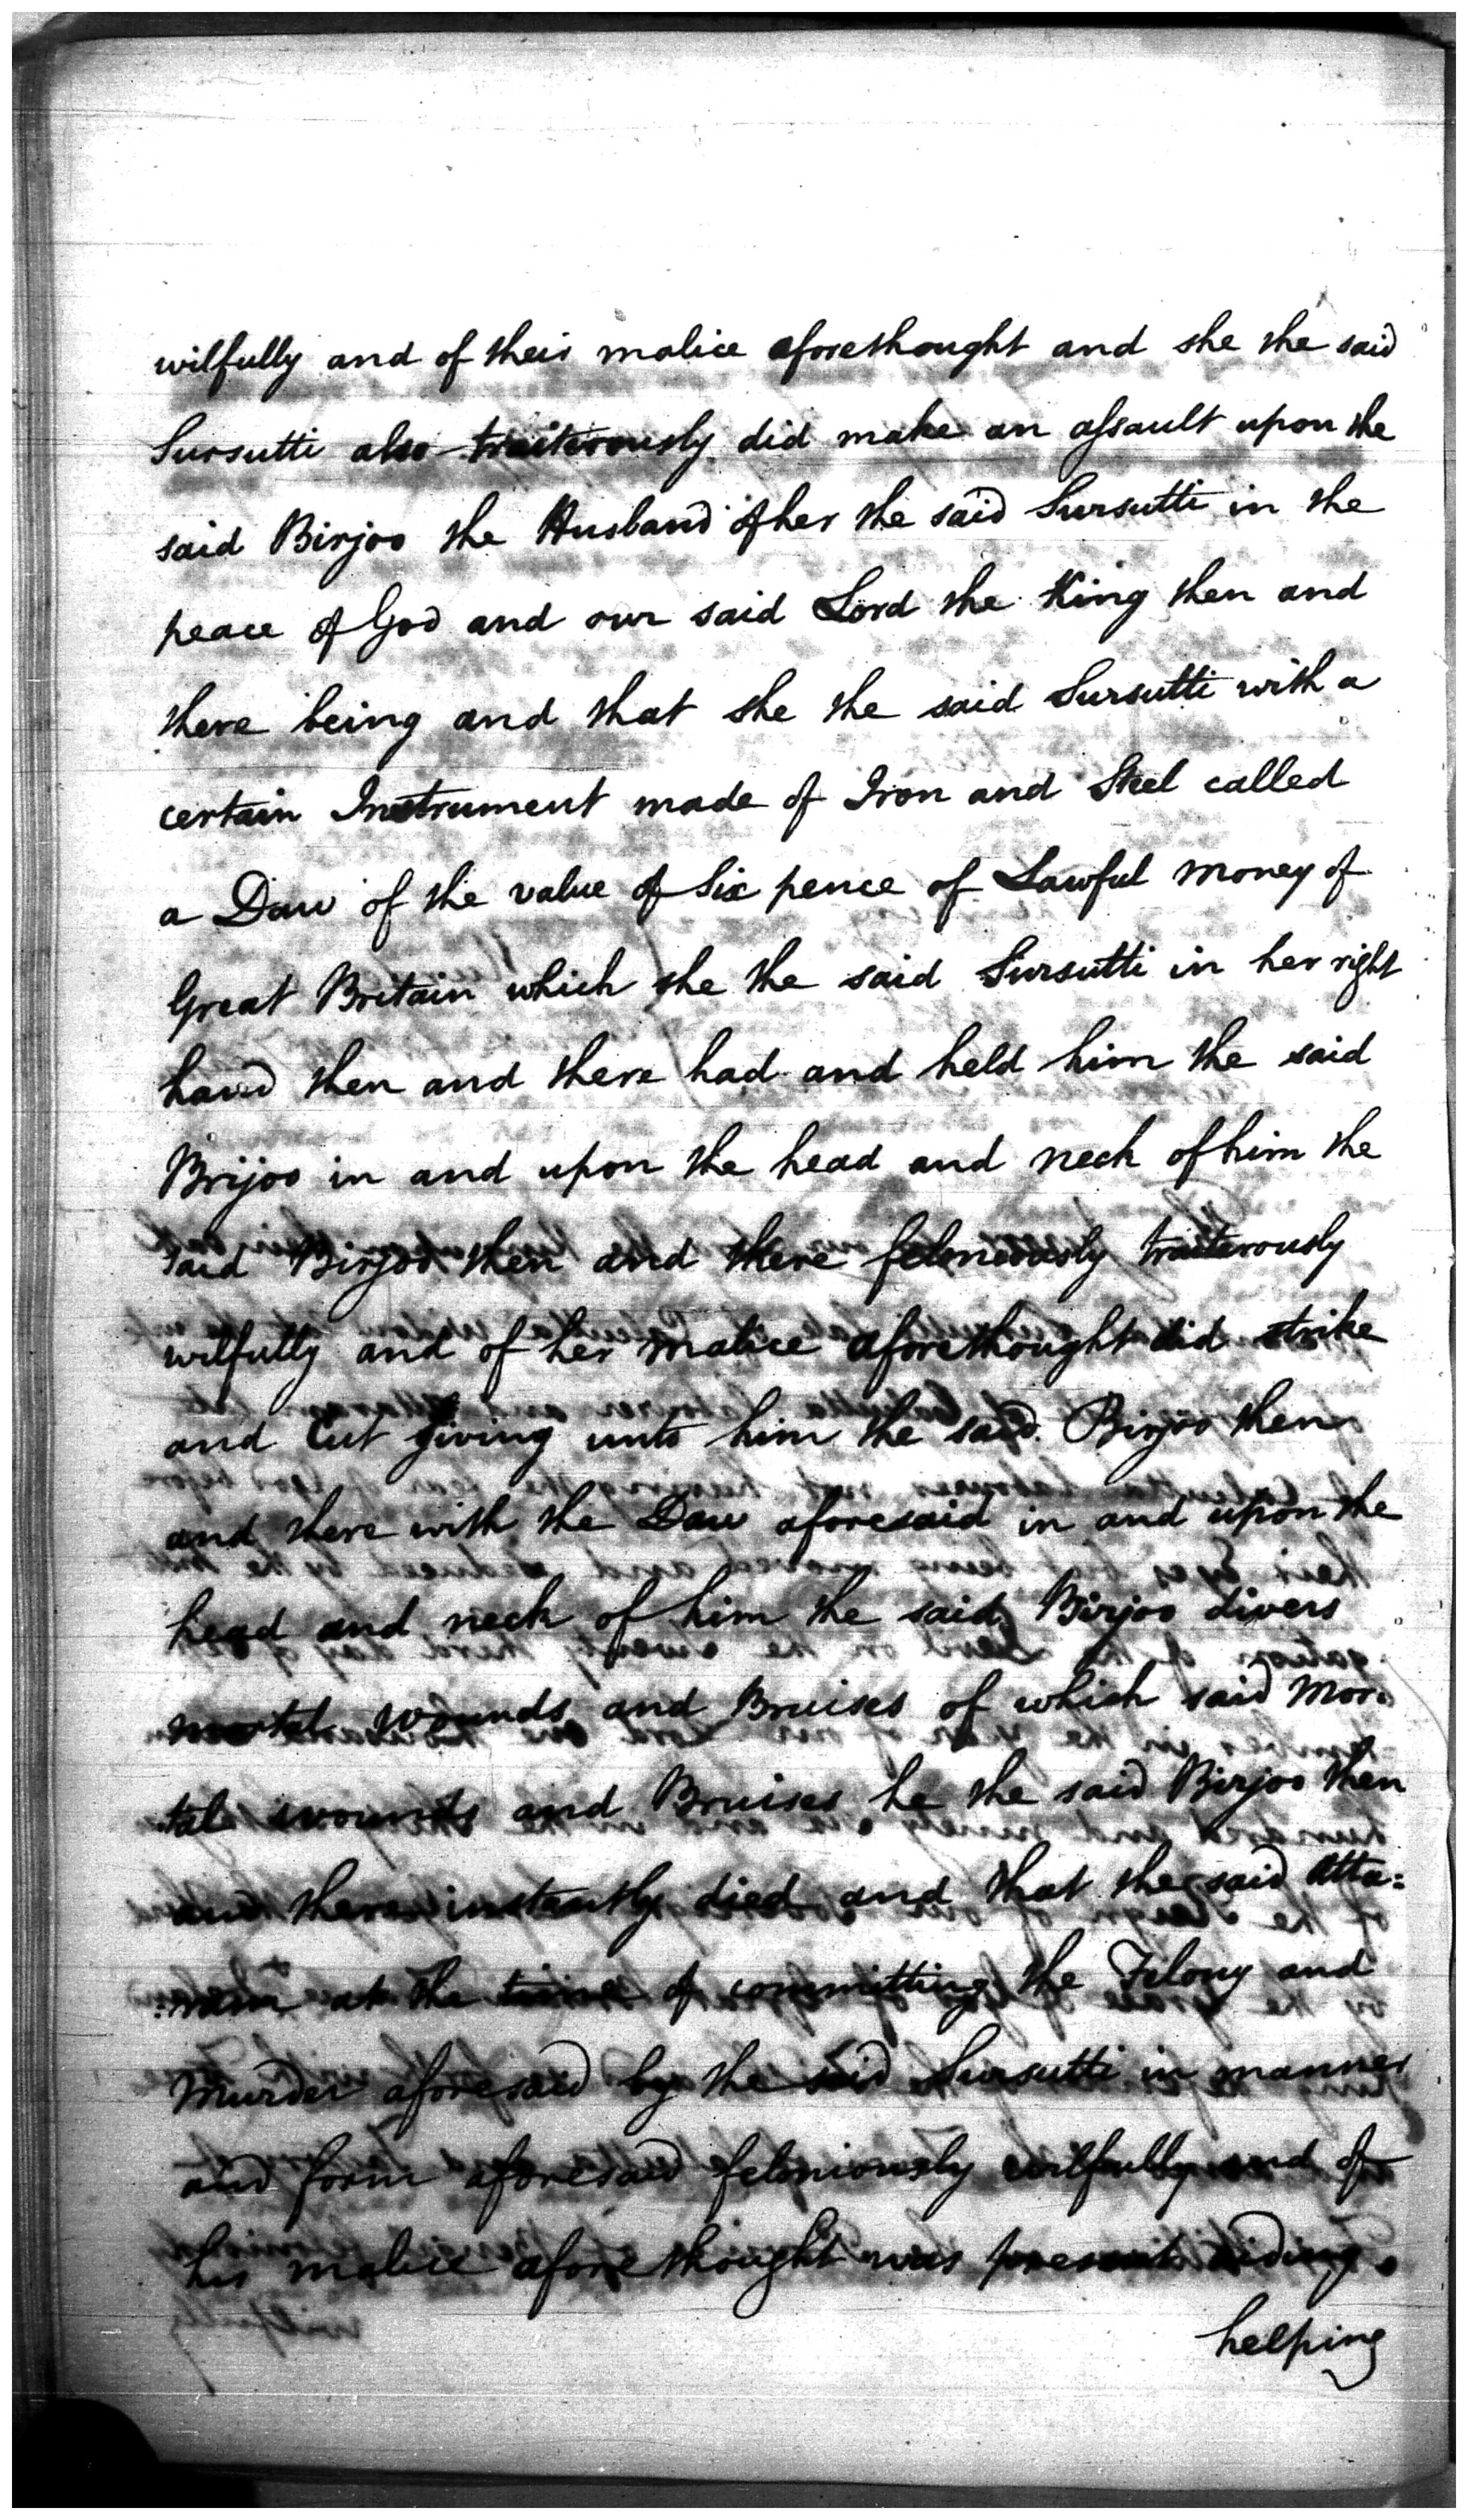 wilfully and of their malice aforethought and she the said
Sursutti also traiterously did make an assault upon the
said Birjoo the Husband of her the said Sursutti in the
peace of God and our said Lord the King then and
there being and that she the said Sursutti with a
certain Instrument made of Iron and Steel called
a Daw of the value of Six pence of Lawful money of
Great Britain which she the said Sursutti in her right
hand then and there had and held him the said
Brijoo in and upon the head and neck of him the
said Birjoo then and there feloniously traiterously
wilfully and of her malice aforethought did strike
and Cut giving unto him the said Birjoo then
and there with the Daw aforesaid in and upon the
head and neck of him the said Birjoo divers
mortal wounds and Bruises of which said Mor:
:tal wounds and Bruises he the said Birjoo then
and there instantly died and that the said Atta:
:ram at the time of committing the Felony and
Murder aforesaid by the said Sursutti in manner
and form aforesaid feloniously wilfully and of
his malice aforethought was present aiding
helping